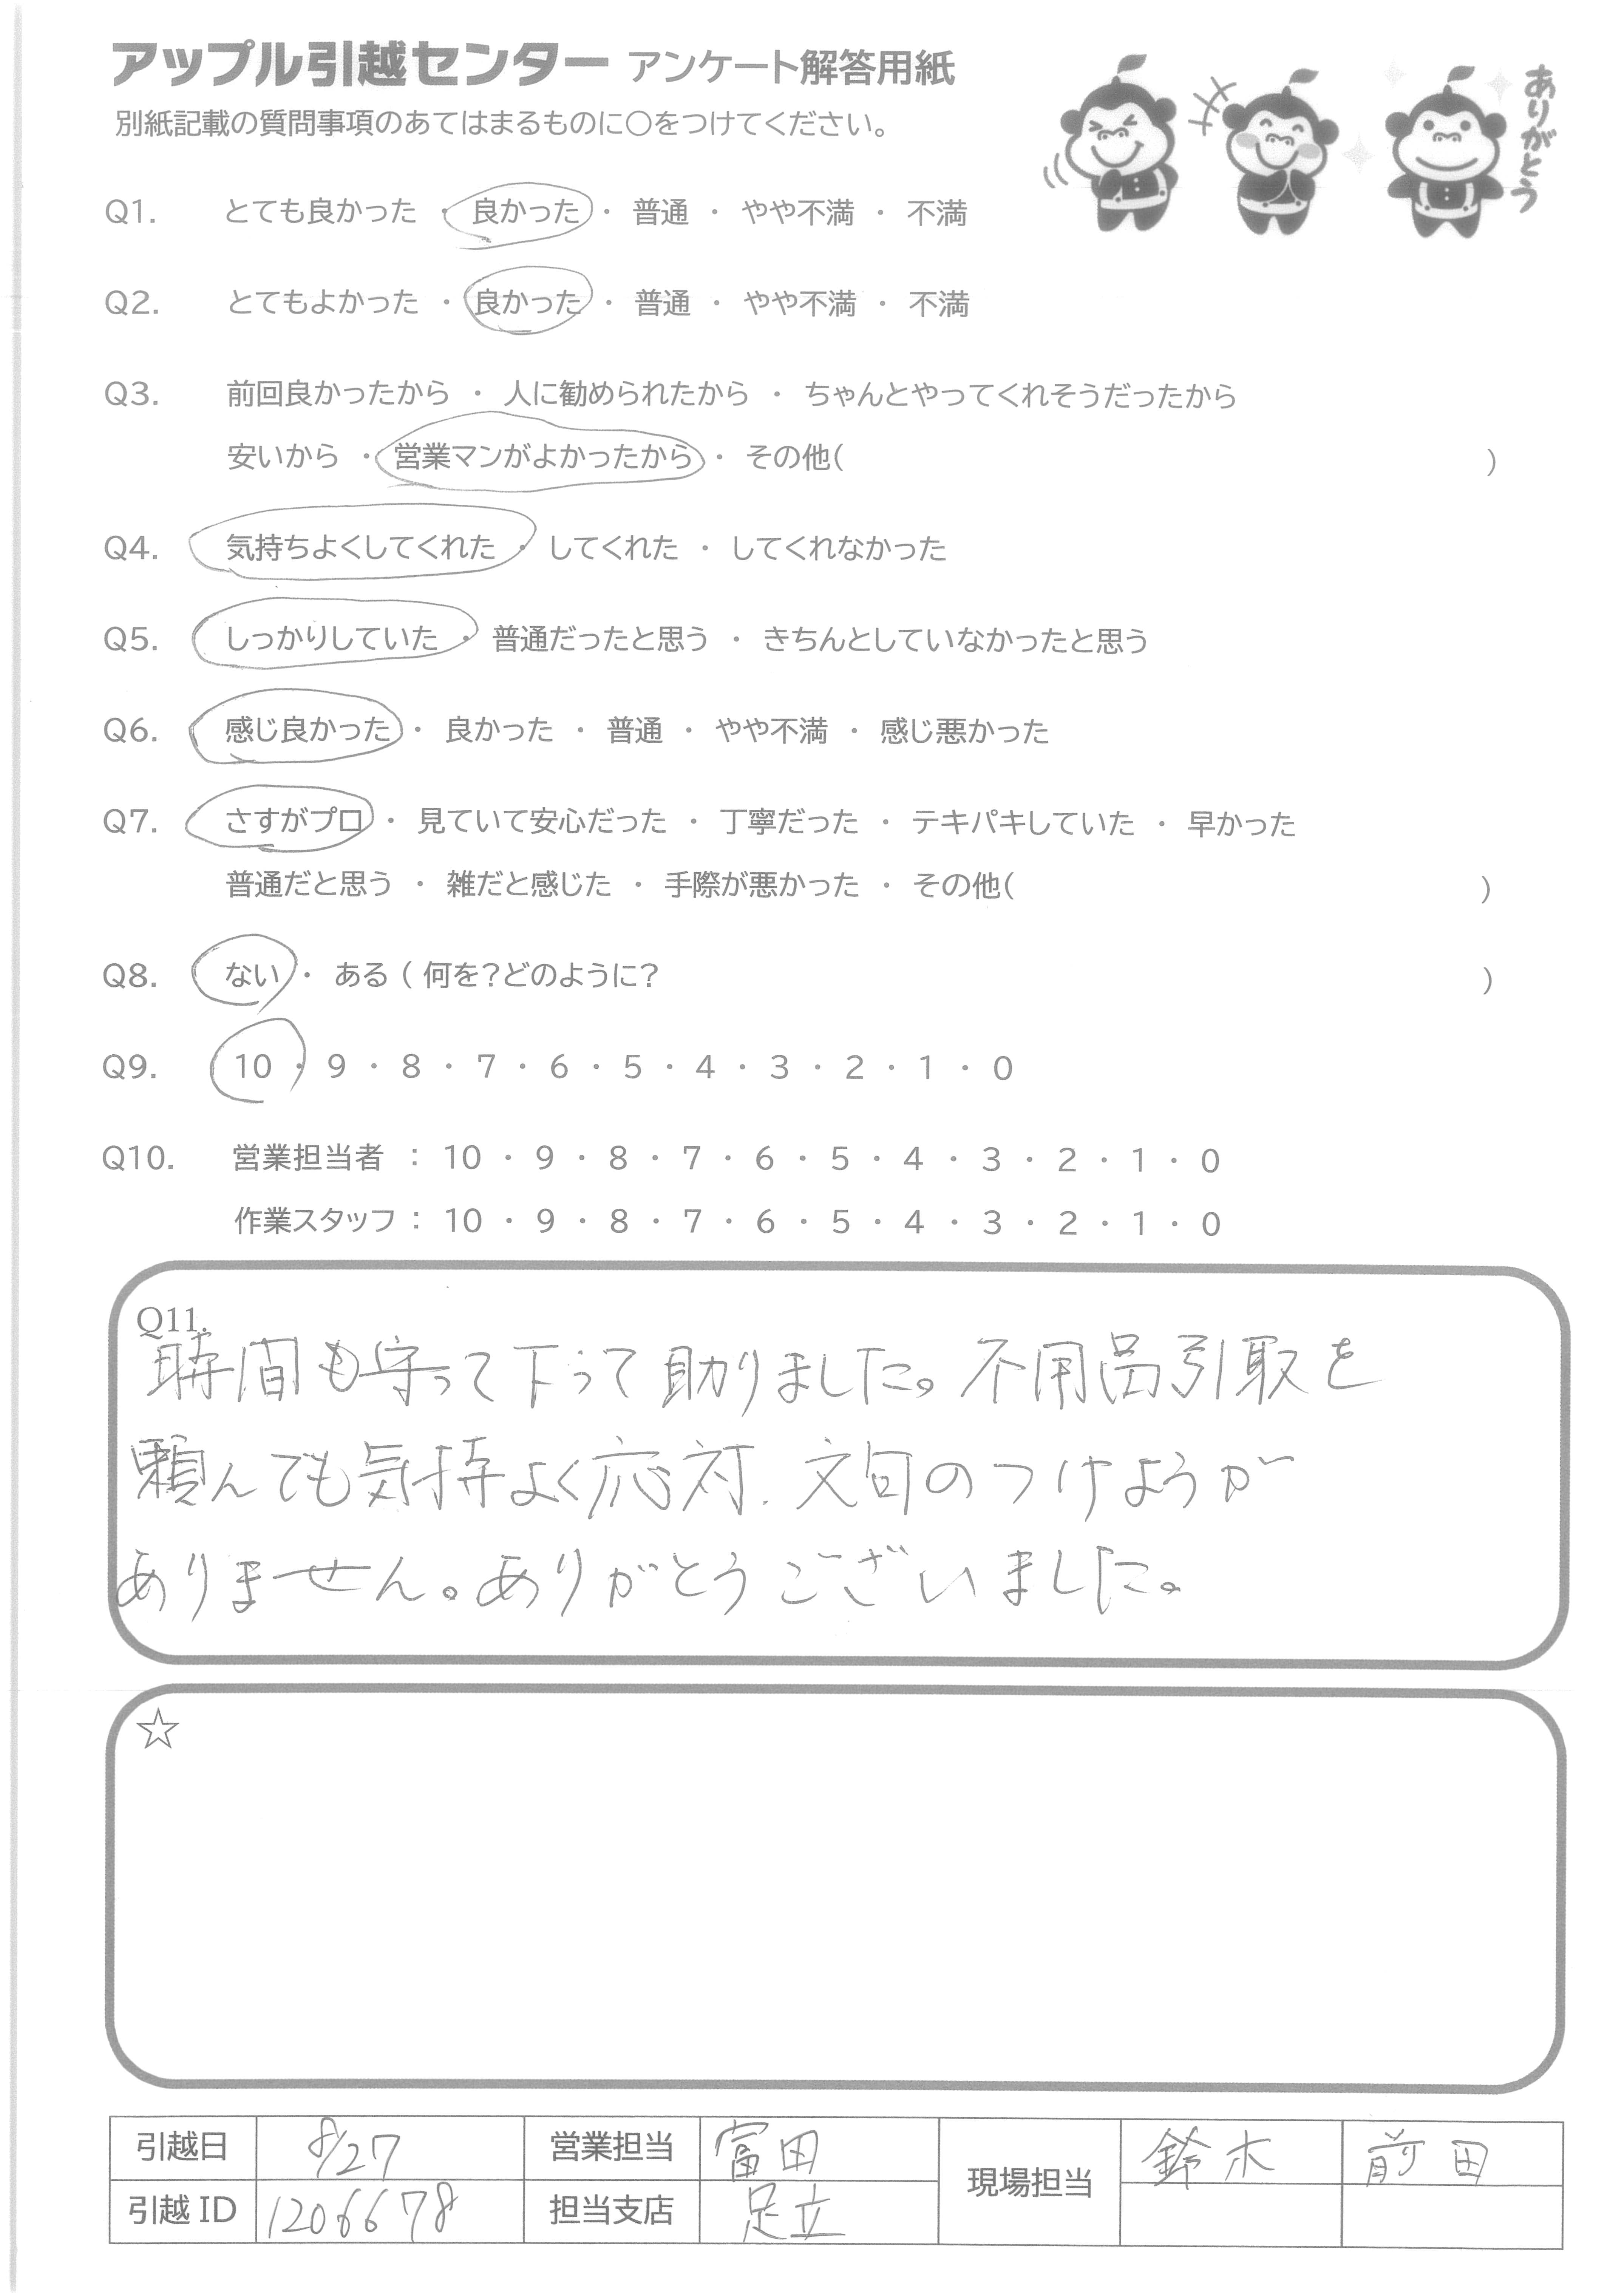 アップル引越センター アンケート解答用紙
別紙記載の質問事項のあてはまるものに○をつけてください。
ありがとう
Q1. とても良かった ・ 良かった ・ 普通 ・ やや不満 ・ 不満
Q2. とてもよかった ・ 良かった ・ 普通 ・ やや不満 ・ 不満
Q3. 前回良かったから ・ 人に勧められたから ・ ちゃんとやってくれそうだったから
安いから ・ 営業マンがよかったから ・ その他( )
Q4. 気持ちよくしてくれた ・ してくれた ・ してくれなかった
Q5. しっかりしていた ・ 普通だったと思う ・ きちんとしていなかったと思う
Q6. 感じ良かった ・ 良かった ・ 普通 ・ やや不満 ・ 感じ悪かった
Q7. さすがプロ ・ 見ていて安心だった ・ 丁寧だった ・ テキパキしていた ・ 早かった
普通だと思う ・ 雑だと感じた ・ 手際が悪かった ・ その他( )
Q8. ない ・ ある ( 何を?どのように? )
Q9. 10 ・ 9 ・ 8 ・ 7 ・ 6 ・ 5 ・ 4 ・ 3 ・ 2 ・ 1 ・ 0
Q10. 営業担当者 : 10 ・ 9 ・ 8 ・ 7 ・ 6 ・ 5 ・ 4 ・ 3 ・ 2 ・ 1 ・ 0
作業スタッフ : 10 ・ 9 ・ 8 ・ 7 ・ 6 ・ 5 ・ 4 ・ 3 ・ 2 ・ 1 ・ 0
Q11.
時間も守って下って助りました。不用品引取を
頼んでも気持よく応対.文句のつけようが
ありません。ありがとうございました。
☆
引越日 8/27 営業担当 富田 現場担当 鈴木 前田
引越ID 1206678 担当支店 足立